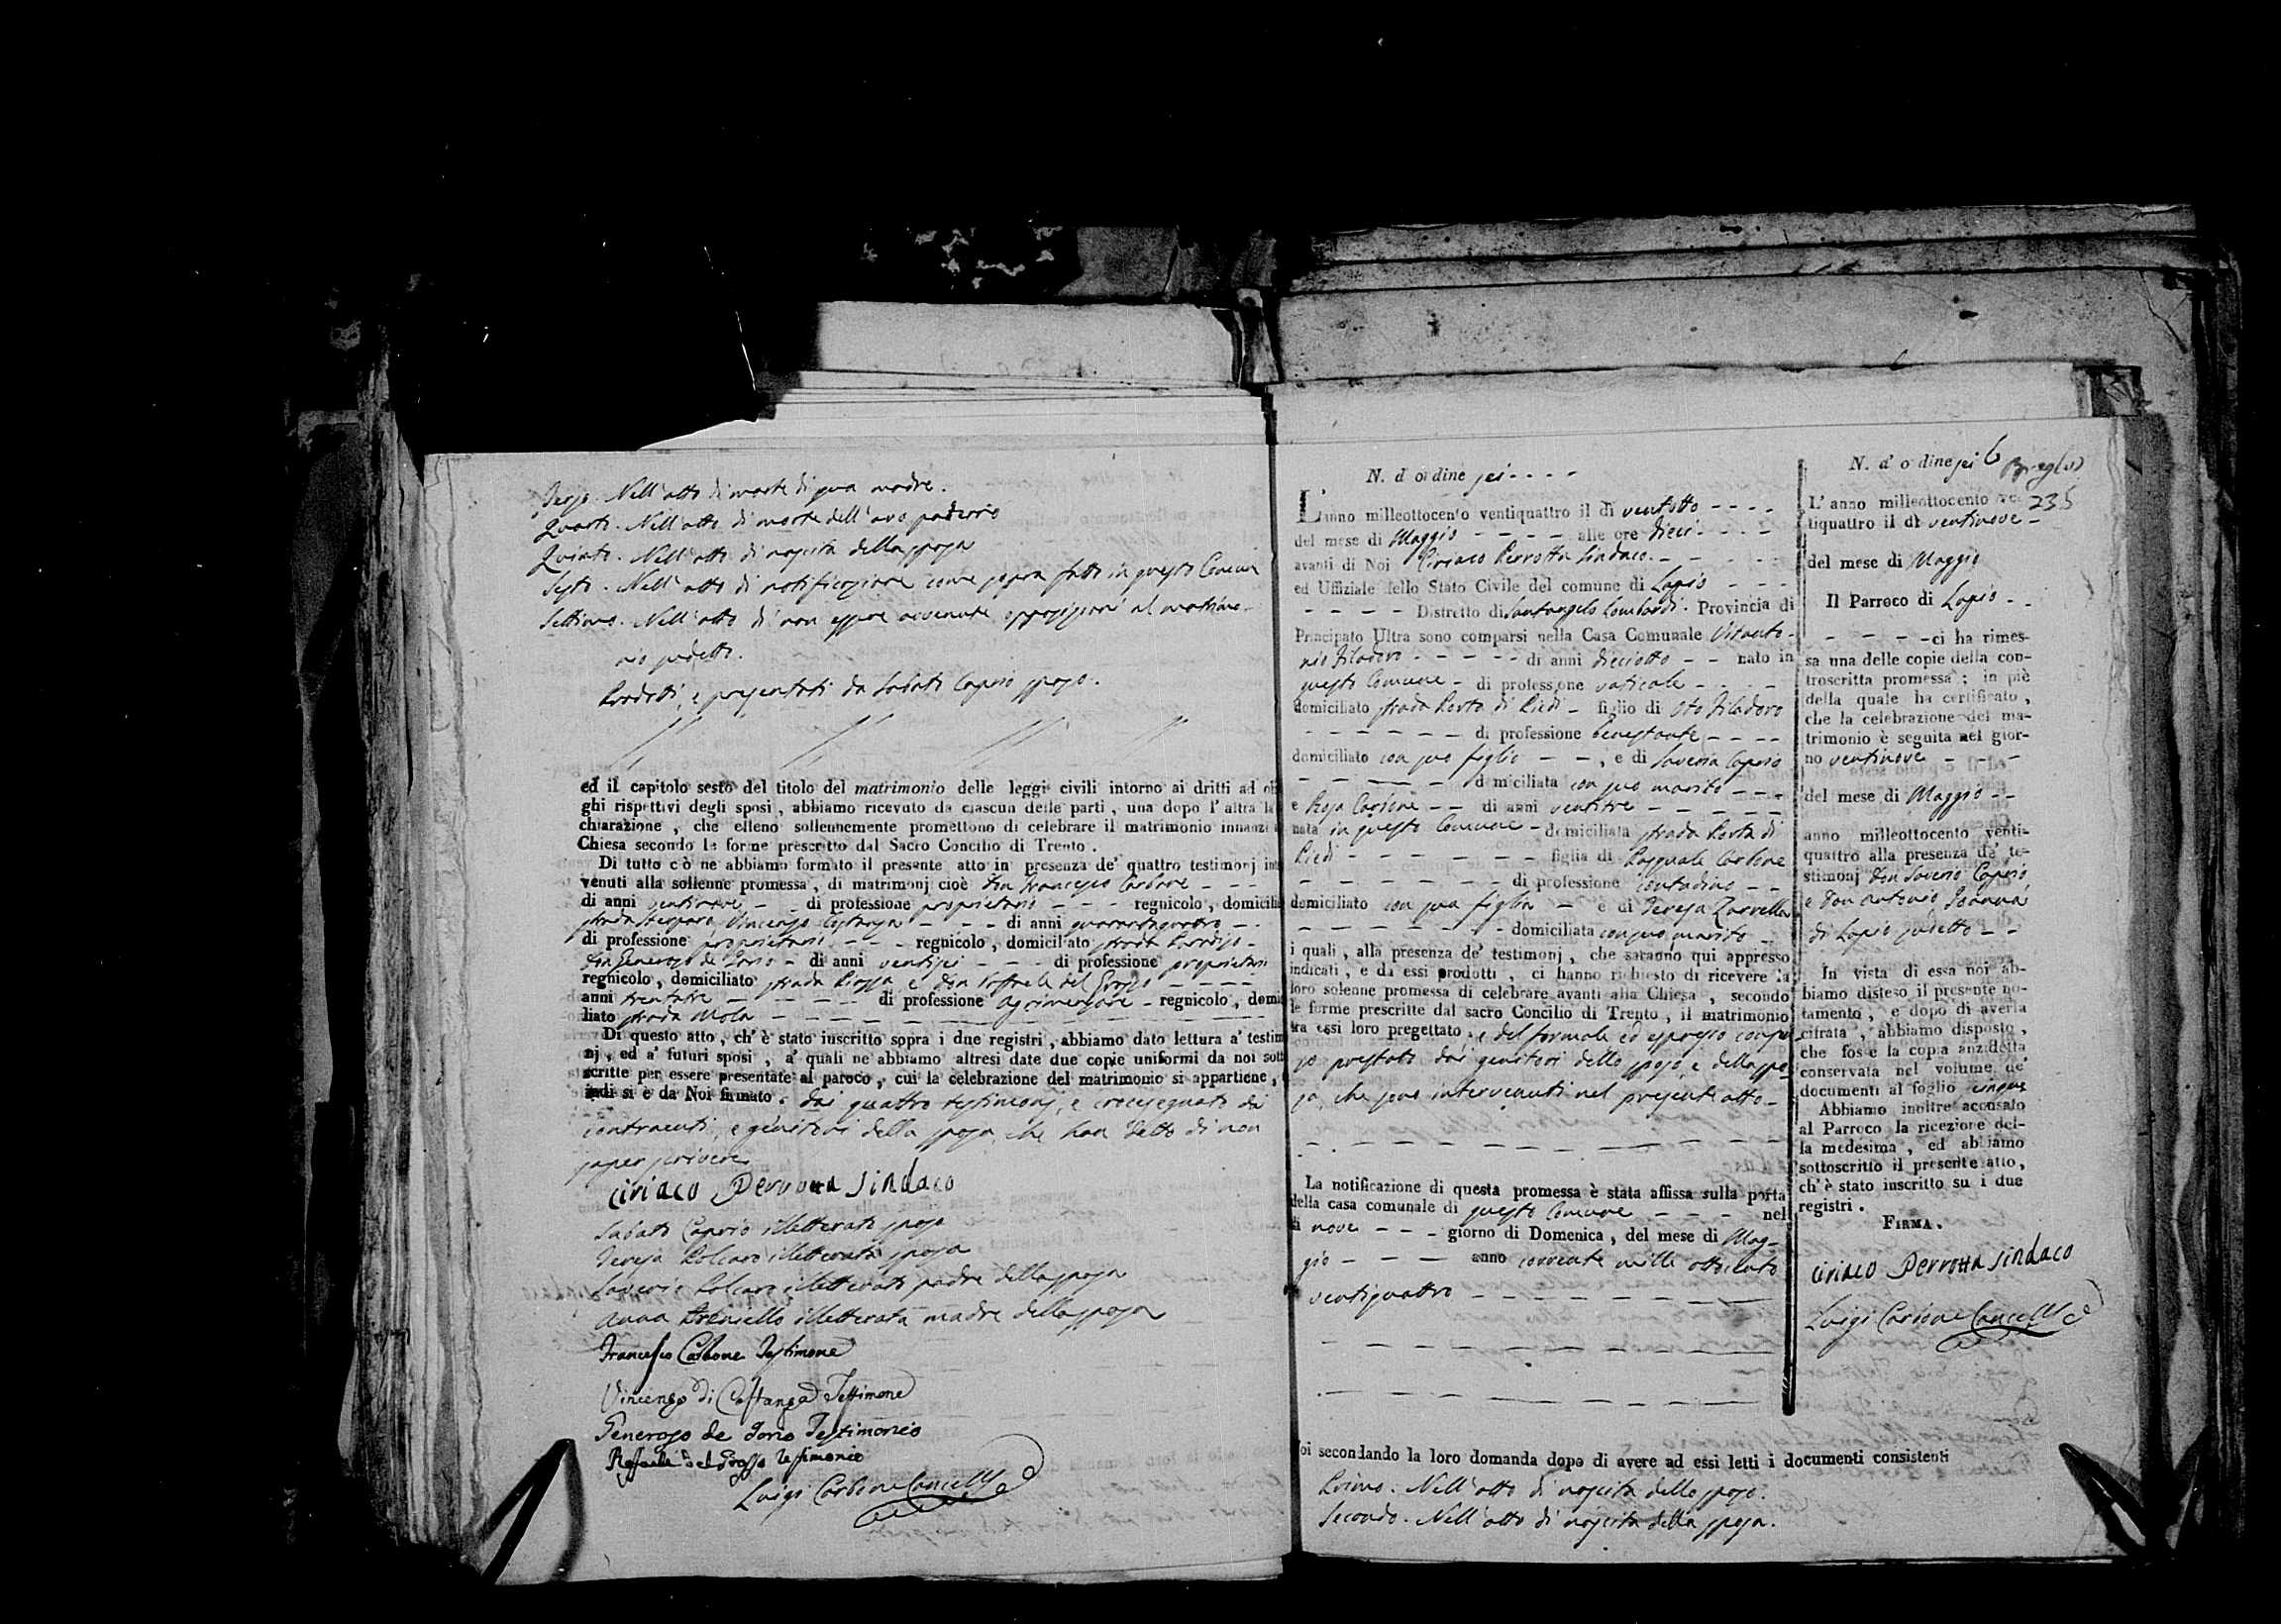 Terzo. Nell'atto di morte di sua madre.
Quarto. Nell'atto di morte dell'avo paterno
Quinto. Nell'atto di nascita della sposa
Sesto. Nell'atto di notificazione come sopra fatta in questo Comune
Settimo. Nell'atto di non essere avvenute opposizioni al matrimo-
nio sudetto.
Prodotti, e presentati da Sabato Caprio sposo.
ed il capitolo sesto del titolo del matrimonio delle leggi civili intorno ai dritti ad ob
ghi rispettivi degli sposi, abbiamo ricevuto da ciascun delle parti, una dopo l'altra la
chiarazione, che elleno sollennemente promettono di celebrare il matrimonio innanzi
Chiesa secondo le forme prescritto dal Sacro Concilio di Trento.
Di tutto ciò ne abbiamo formato il presente atto in presenza de' quattro testimonj int
venuti alla sollenne promessa, di matrimonj cioè Don Francesco Carbone
di anni ventinove di professione proprietario regnicolo, domicilia
strada Vincenzo Castanza di anni quarantaquattro
di professione proprietario regnicolo, domiciliato strada
Don Generoso de Iorio di anni ventisei di professione proprietario
regnicolo, domiciliato strada Piazza e Don Raffaele del Grosso
anni trentatre di professione agrimensore regnicolo, domi
liato strada Mola
Di questo atto, ch'è stato iuscritto sopra i due registri, abbiamo dato lettura a' testim
nj, ed a' futuri sposi, a' quali ne abbiamo altresi date due copie uniformi da noi sott
scritte per essere presentate al paroco, cui la celebrazione del matrimonio si appartiene,
indi si è da Noi firmato. dai quattro testimonj, e crocesegnato dai
contraenti, e genitori della sposa che han detto di non
saper scrivere
Ciriaco Perrotta Sindaco
Sabato Caprio illetterato sposo
Teresa Polcaro illetterata sposa
Saverio Polcaro illetterato padre della sposa
Anna illetterata madre della sposa
Francesco Carbone Testimone
Vincenzo di Castanza Testimone
Generoso de Iorio Testimonio
Raffaele del Grosso Testimonio
Luigi Carbone Cancell.e
N. d'ordine sei
L'anno milleottocento ventiquattro il dì ventotto
del mese di Maggio alle ore dieci
avanti di Noi Ciriaco Perrotta Sindaco
ed Uffiziale dello Stato Civile del comune di Lapio
Distretto di Santangelo Lombardi. Provincia di
Principato Ultra sono comparsi nella Casa Comunale Vitanto-
nio Filadoro di anni dieciotto nato in
questo Comune di professione vaticale
domiciliato strada Porta di Piedi figlio di Oto Filadoro
di professione benestante
domiciliato con suo figlio, e di Saveria Caprio
domiciliata con suo marito
e Rosa Carbone di anni ventitre
nata in questo Comune domiciliata strada Porta di
Piedi figlia di Pasquale Carbone
di professione contadino
domiciliato con sua figlia e di Teresa Zarrella
domiciliata con suo marito
i quali, alla presenza de' testimonj, che saranno qui appresso
indicati, e da essi prodotti, ci hanno richiesto di ricevere la
loro solenne promessa di celebrare avanti alla Chiesa, secondo
le forme prescritte dal sacro Concilio di Trento, il matrimonio
tra essi loro pregettato, e del formale ed espresso consen
so prestato dai genitori dello sposo, e della spo
sa, che sono intervenuti nel presente atto
La notificazione di questa promessa è stata affissa sulla porta
della casa comunale di questo Comune nel
dì nove giorno di Domenica, del mese di Mag-
gio anno corrente mille ottocento
ventiquattro
oi secondando la loro domanda dopo di avere ad essi letti i documenti consistenti
Primo. Nell'atto di nascita dello sposo.
Secondo. Nell'atto di nascita della sposa.
N. d'ordine sei 6
235
L'anno milleottocento ven
tiquattro il dì ventinove
del mese di Maggio
Il Parroco di Lapio
ci ha rimes-
sa una delle copie della con-
troscritta promessa; in piè
della quale ha certificato,
che la celebrazione del ma-
trimonio è seguita nel gior-
no ventinove
del mese di Maggio
anno milleottocento venti-
quattro alla presenza de' te-
stimonj Don Saverio Caprio
e Don Antonio Ioanna
di Lapio sudetto
In vista di essa noi ab-
biamo disteso il presente no-
tamento, e dopo di averla
cifrata, abbiamo disposto,
che fosse la copia anzidetta
conservata nel volume de'
documenti al foglio cinque
Abbiamo inoltre accusato
al Parroco la ricezione del-
la medesima, ed abbiamo
sottoscritto il presente atto,
ch'è stato inscritto su i due
registri.
FIRMA.
Ciriaco Perrotta Sindaco
Luigi Carbone Cancell.e